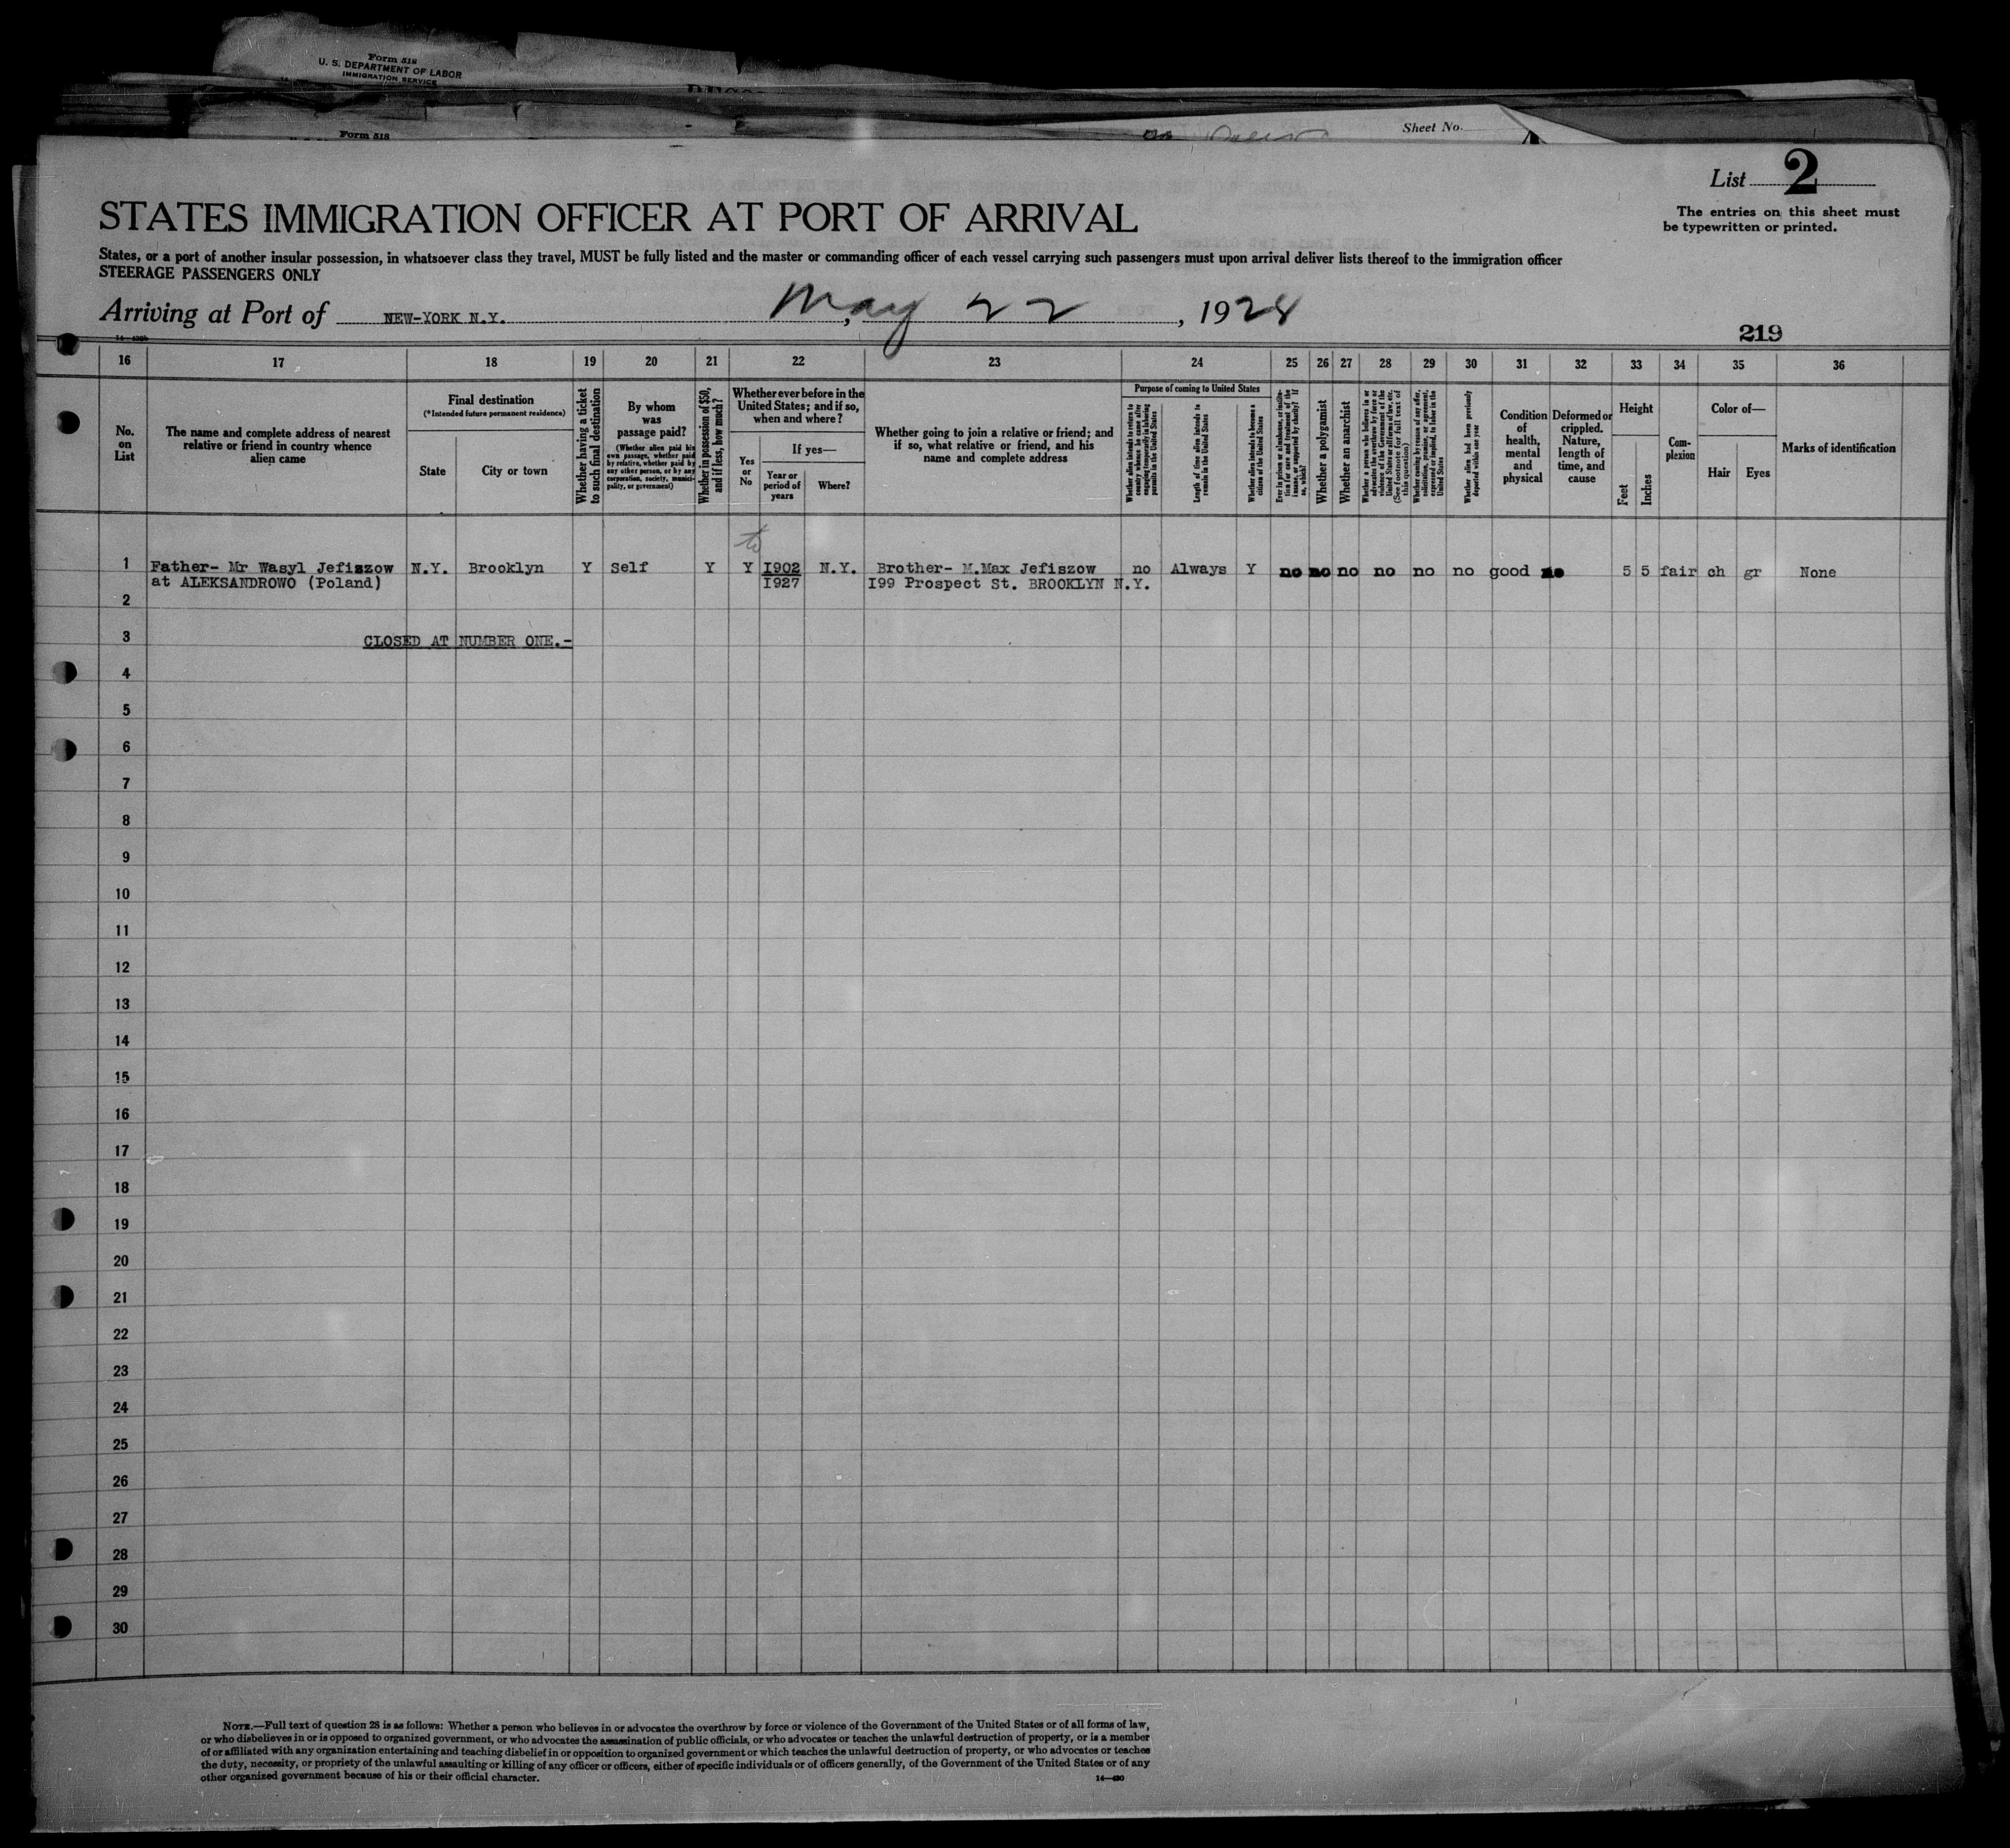 Form 518
U. S. DEPARTMENT OF LABOR
IMMIGRATION SERVICE
Form 518
Sheet No.
List 2
The entries on this sheet must
be typewritten or printed.
STATES IMMIGRATION OFFICER AT PORT OF ARRIVAL
States, or a port of another insular possession, in whatsoever class they travel, MUST be fully listed and the master or commanding officer of each vessel carrying such passengers must upon arrival deliver lists thereof to the immigration officer
STEERAGE PASSENGERS ONLY
Arriving at Port of NEW-YORK N.Y. , May 22 , 1928
219
16 17 18 19 20 21 22 23 24 25 26 27 28 29 30 31 32 33 34 35 36
No.
on
List
The name and complete address of nearest
relative or friend in country whence
alien came
Final destination
(*Intended future permanent residence)
State
City or town
Whether having a ticket
to such final destination
By whom
was
passage paid?
(Whether alien paid his
own passage, whether paid
by relative, whether paid by
any other person, or by any
corporation, society, munici-
pality, or government)
Whether in possession of $50,
and if less, how much?
Whether ever before in the
United States; and if so,
when and where?
Yes
or
No
If yes—
Year or
period of
years
Where?
Whether going to join a relative or friend; and
if so, what relative or friend, and his
name and complete address
Purpose of coming to United States
Whether alien intends to return to
country whence he came after
engaging temporarily in laboring
pursuits in the United States
Length of time alien intends to
remain in the United States
Whether alien intends to become a
citizen of the United States
Ever in prison or almshouse, or institu-
tion for care and treatment of the
insane, or supported by charity? If
so, which?
Whether a polygamist
Whether an anarchist
Whether a person who believes in or
advocates the overthrow by force or
violence of the Government of the
United States or all forms of law, etc.
(See footnote for full text of
this question)
Whether coming by reason of any offer,
solicitation, promise, or agreement,
expressed or implied, to labor in the
United States
Whether alien had been previously
deported within one year
Condition
of
health,
mental
and
physical
Deformed or
crippled.
Nature,
length of
time, and
cause
Height
Feet
Inches
Com-
plexion
Color of—
Hair
Eyes
Marks of identification
to
1 Father- Mr Wasyl Jefiszow N.Y. Brooklyn Y Self Y Y I902 N.Y. Brother- M.Max Jefiszow no Always Y no no no no no no good no 5 5 fair ch gr None
at ALEKSANDROWO (Poland) I927 I99 Prospect St. BROOKLYN N.Y.
2
3 CLOSED AT NUMBER ONE.-
4
5
6
7
8
9
10
11
12
13
14
15
16
17
18
19
20
21
22
23
24
25
26
27
28
29
30
NOTE.—Full text of question 28 is as follows: Whether a person who believes in or advocates the overthrow by force or violence of the Government of the United States or of all forms of law,
or who disbelieves in or is opposed to organized government, or who advocates the assassination of public officials, or who advocates or teaches the unlawful destruction of property, or is a member
of or affiliated with any organization entertaining and teaching disbelief in or opposition to organized government or which teaches the unlawful destruction of property, or who advocates or teaches
the duty, necessity, or propriety of the unlawful assaulting or killing of any officer or officers, either of specific individuals or of officers generally, of the Government of the United States or of any
other organized government because of his or their official character.
14—430